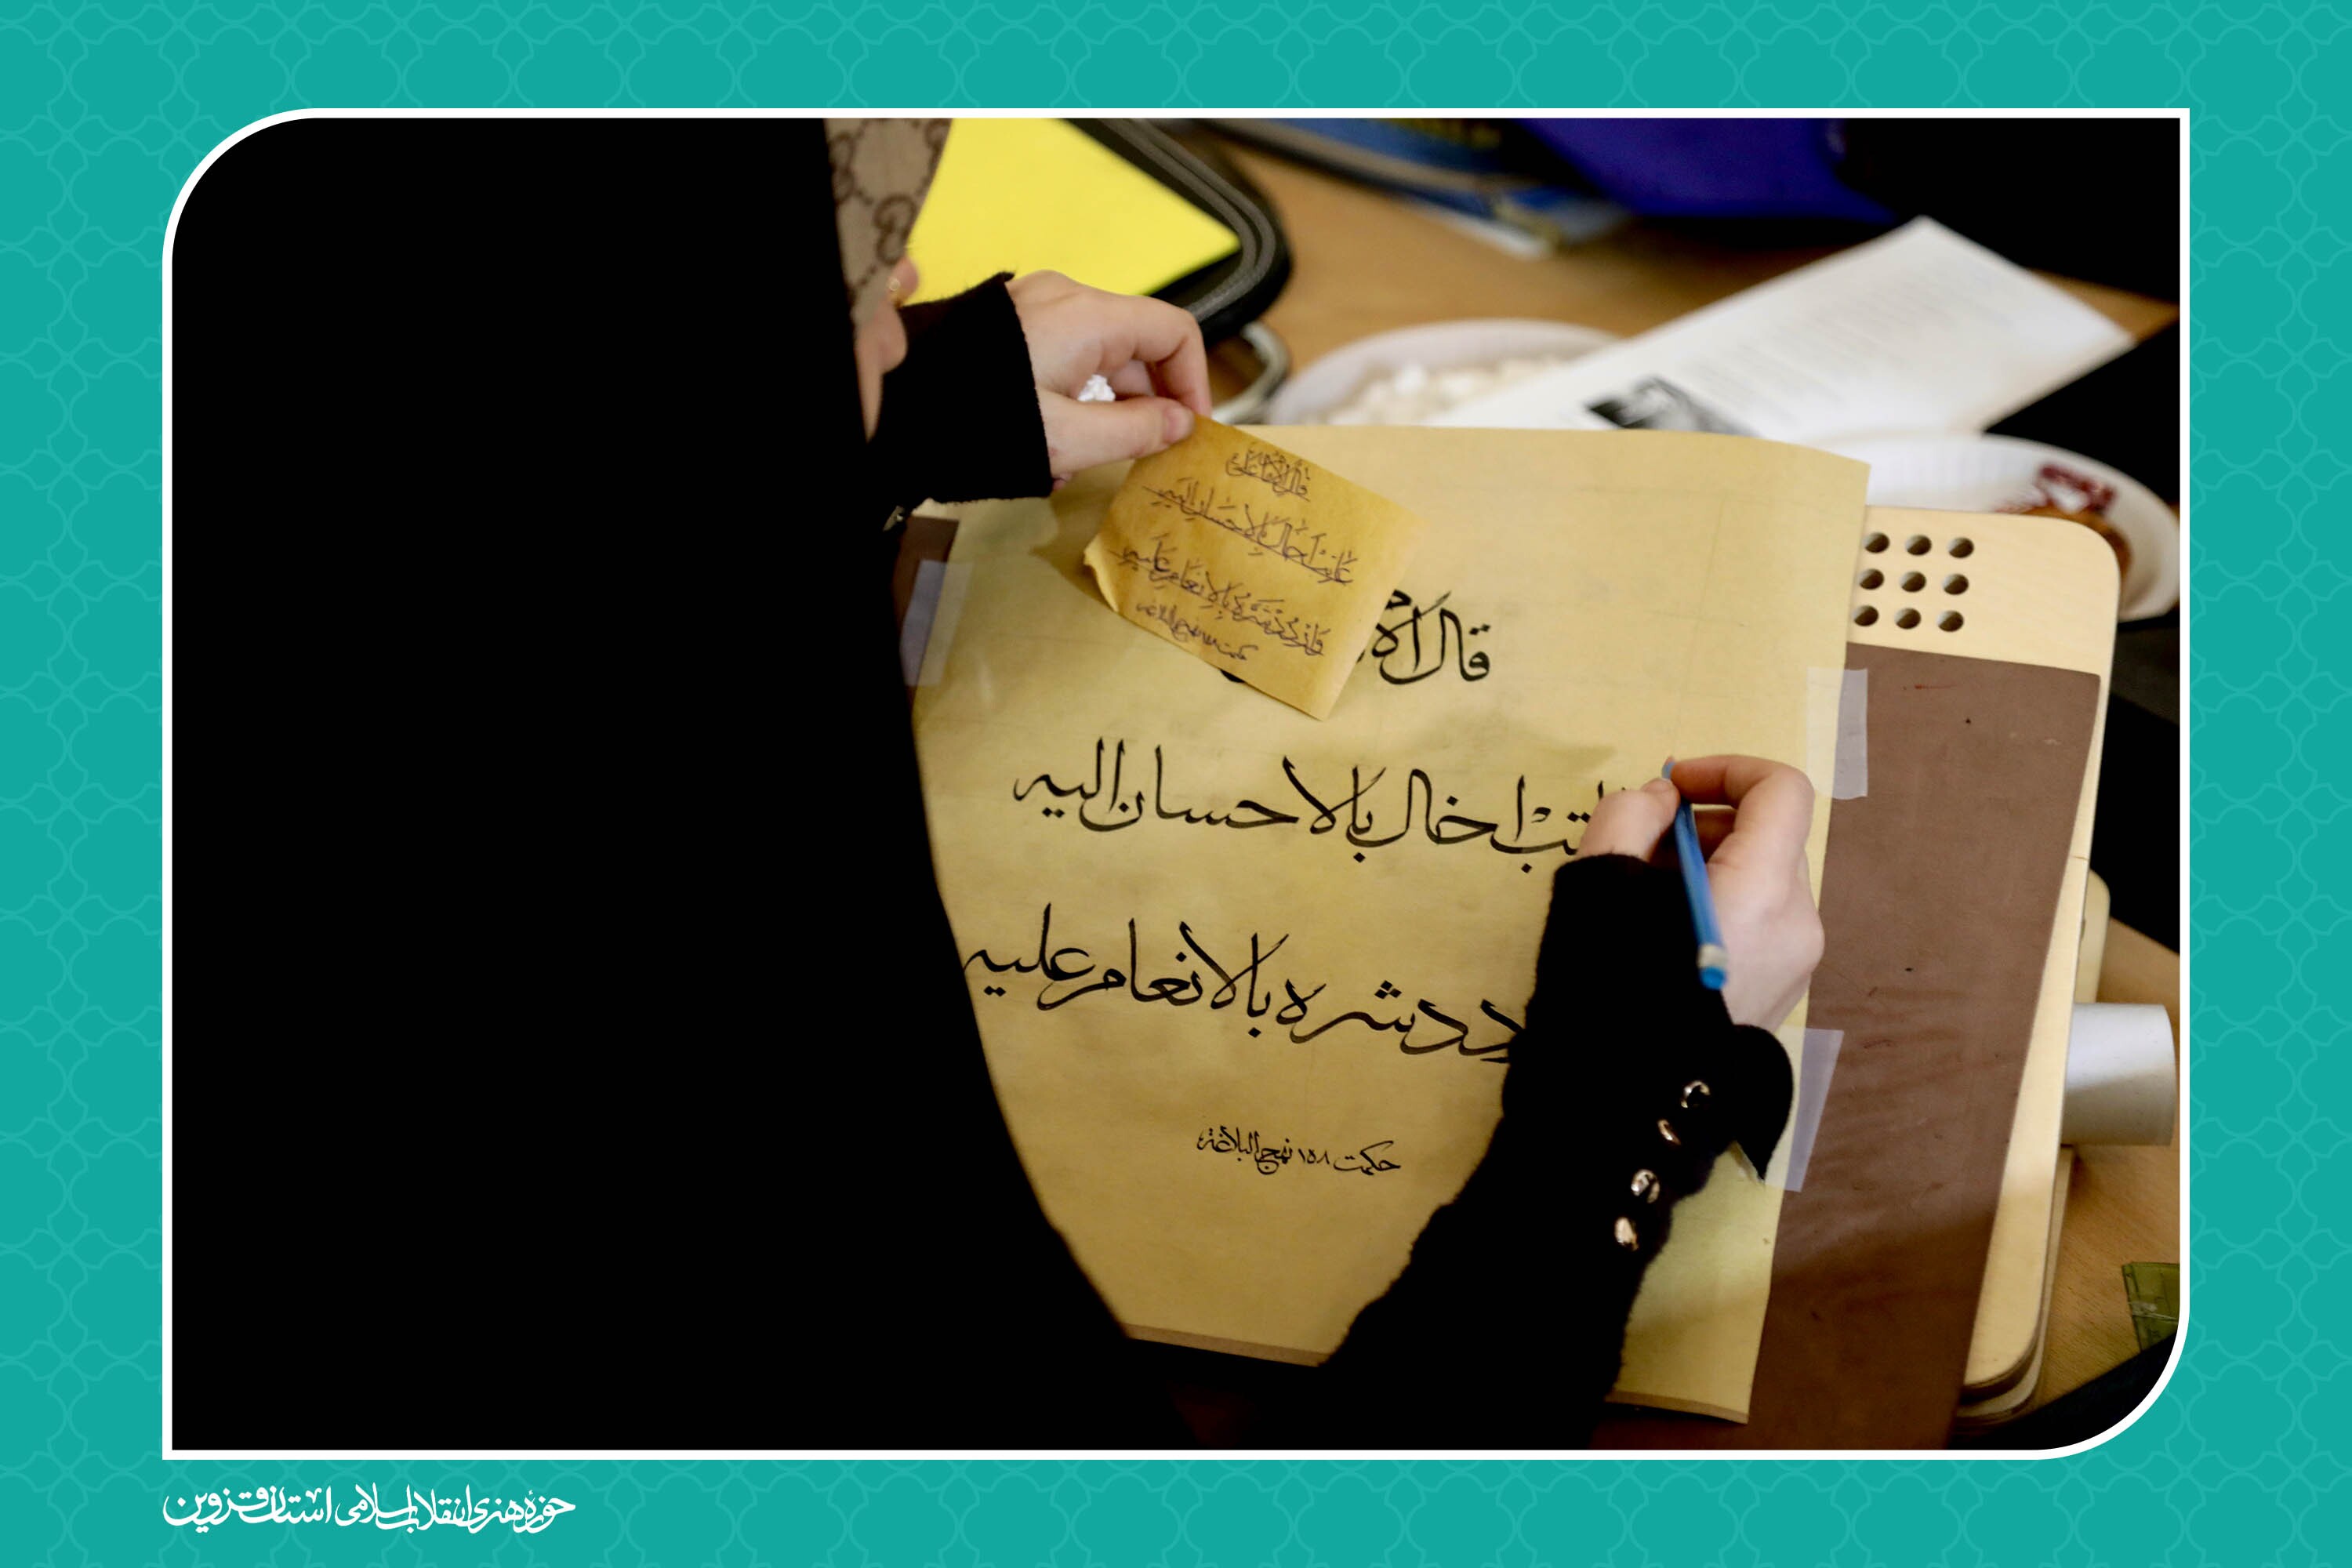 قال الامام علی
عاتِبْ اَخاكَ بِالاِحسَانِ اِلَیهِ
وَاردُد شَرَّهُ بِالاِنعَامِ عَلَیهِ
حکمت ۱۵۸ نهج البلاغه
قال
تبْ اخاك بالاحسان اليه
دد شره بالانعام عليه
حکمت ۱۵۸ نهج البلاغة
حوزهٔ هنری انقلاب اسلامی استان قزوین